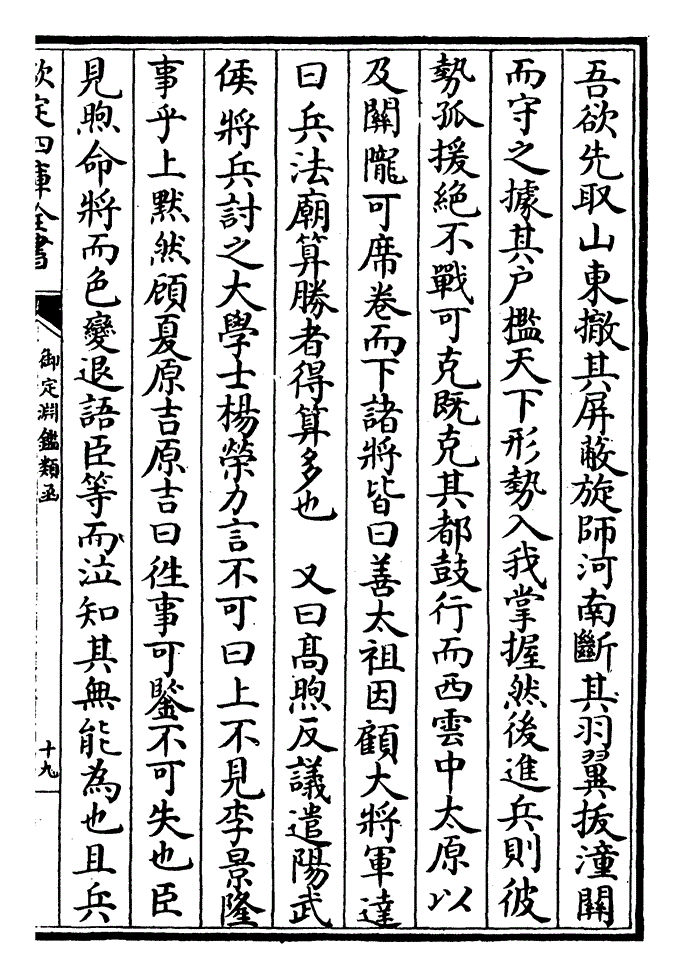 吾欲先取山東撤其屏蔽旋師河南斷其羽翼拔潼關
而守之據其户檻天下形勢入我掌握然後進兵則彼
勢孤援絶不戰可克既克其都鼓行而西雲中太原以
及關隴可席卷而下諸將皆曰善太祖因顧大將軍達
曰兵法廟算勝者得算多也　又曰髙煦反議遣陽武
侯將兵討之大學士楊榮力言不可曰上不見李景隆
事乎上默然顧夏原吉原吉曰徃事可鑒不可失也臣
見煦命將而色變退語臣等而泣知其無能為也且兵
欽定四庫全書
御定淵鑑類函
十九